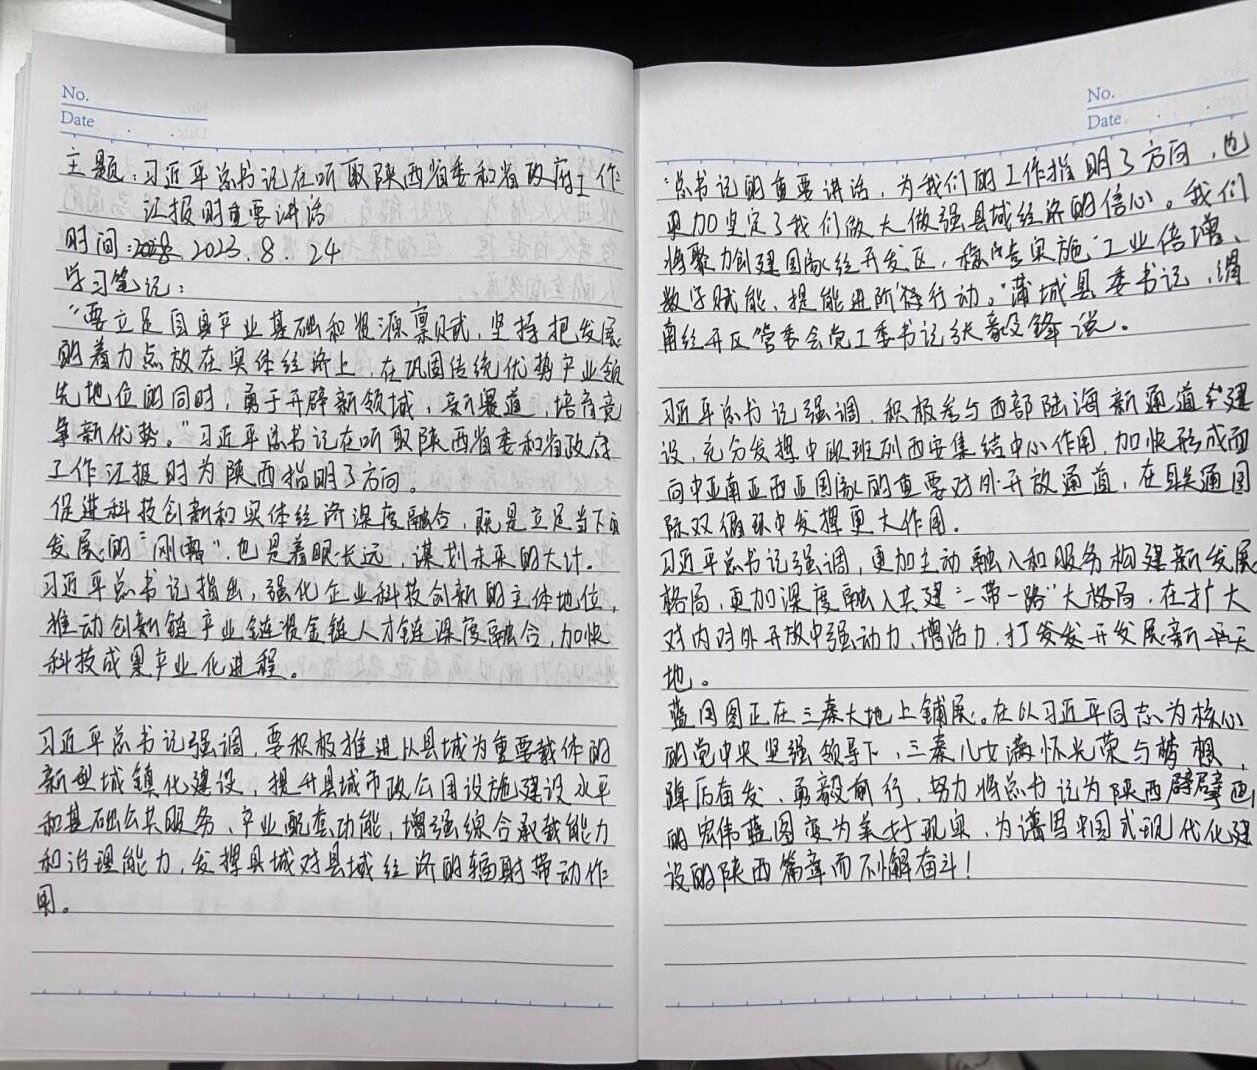 No.
Date
主题：习近平总书记在听取陕西省委和省政府工作
汇报时重要讲话
时间：2023.8.24
学习笔记：
“要立足自身产业基础和资源禀赋，坚持把发展
的着力点放在实体经济上，在巩固传统优势产业领
先地位的同时，勇于开辟新领域、新赛道，培育竞
争新优势。”习近平总书记在听取陕西省委和省政府
工作汇报时为陕西指明了方向。
促进科技创新和实体经济深度融合，既是立足当下
发展的“刚需”，也是着眼长远，谋划未来的大计。
习近平总书记指出，强化企业科技创新的主体地位，
推动创新链产业链资金链人才链深度融合，加快
科技成果产业化进程。
习近平总书记强调，要积极推进以县城为重要载体的
新型城镇化建设，提升县城市政公用设施建设水平
和基础公共服务、产业配套功能，增强综合承载能力
和治理能力，发挥县城对县域经济的辐射带动作
用。
No.
Date
“总书记的重要讲话，为我们的工作指明了方向，也
更加坚定了我们做大做强县域经济的信心。我们
将聚力创建国家级经开发区，稳步实施‘工业倍增、
数字赋能、提能进阶’行动。”蒲城县委书记，渭
南经开区管委会党工委书记张毅锋说。
习近平总书记强调，积极参与西部陆海新通道建
设，充分发挥中欧班列西安集结中心作用，加快形成面
向中亚南亚西亚国家的重要对外开放通道，在联通国
际双循环中发挥更大作用。
习近平总书记强调，更加主动融入和服务构建新发展
格局，更加深度融入共建“一带一路”大格局，在扩大
对内对外开放中强动力、增活力，打开发展新天
地。
蓝图正在三秦大地上铺展。在以习近平同志为核心
的党中央坚强领导下，三秦儿女满怀光荣与梦想，
踔厉奋发、勇毅前行，努力将总书记为陕西擘画
的宏伟蓝图变为美好现实，为谱写中国式现代化建
设的陕西篇章而不懈奋斗！